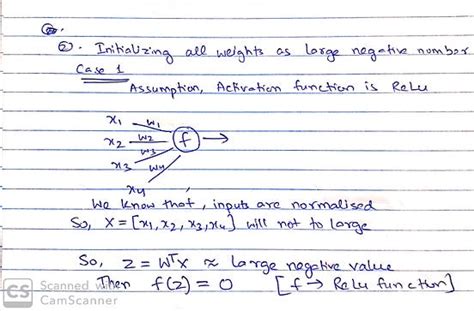 ②. Initializing all weights as large negative number
Case 1
Assumption, Activation function is ReLu
x1 w1
x2 w2 f →
w3
x3 w4
x4
We know that, inputs are normalised
So, X = [x1, x2, x3, x4] will not to large
So, Z = WᵀX ≈ large negative value
Then f(z) = 0 [f → Relu function]
CS Scanned with
CamScanner